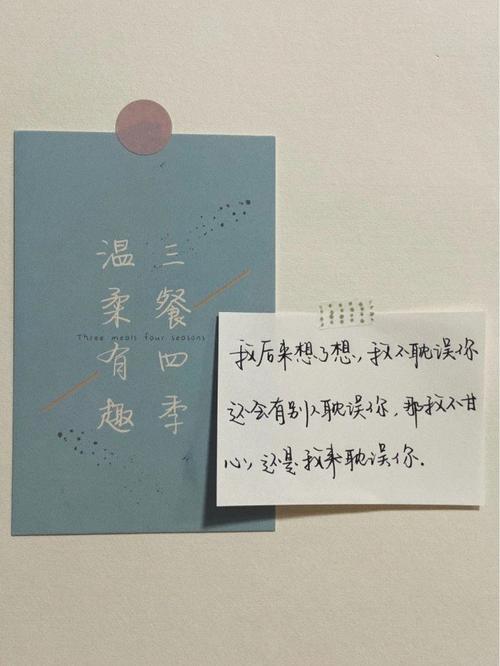 三餐四季
温柔有趣
Three meals four seasons
我后来想了想，我不耽误你
还会有别人耽误你，那我不甘
心，还是我来耽误你.